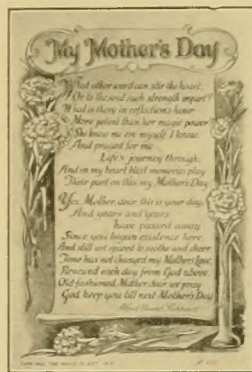 My Mother's Day
What other word can stir the heart,
Or to the soul such strength impart?
What is there in reflection's hour
More potent than her magic power
She knew me ere myself I knew,
And prayed for me
Life's journey through,
And in my heart blest memories play
Their part on this, my Mother's Day
Yes, Mother, dear this is your day,
And years and years
have passed away
Since you began existence here,
And still art spared to soothe and cheer
Time has not changed my Mother's love,
Renewed each day from God above
Old-fashioned Mother, dear we pray
God keep you till next Mother's Day